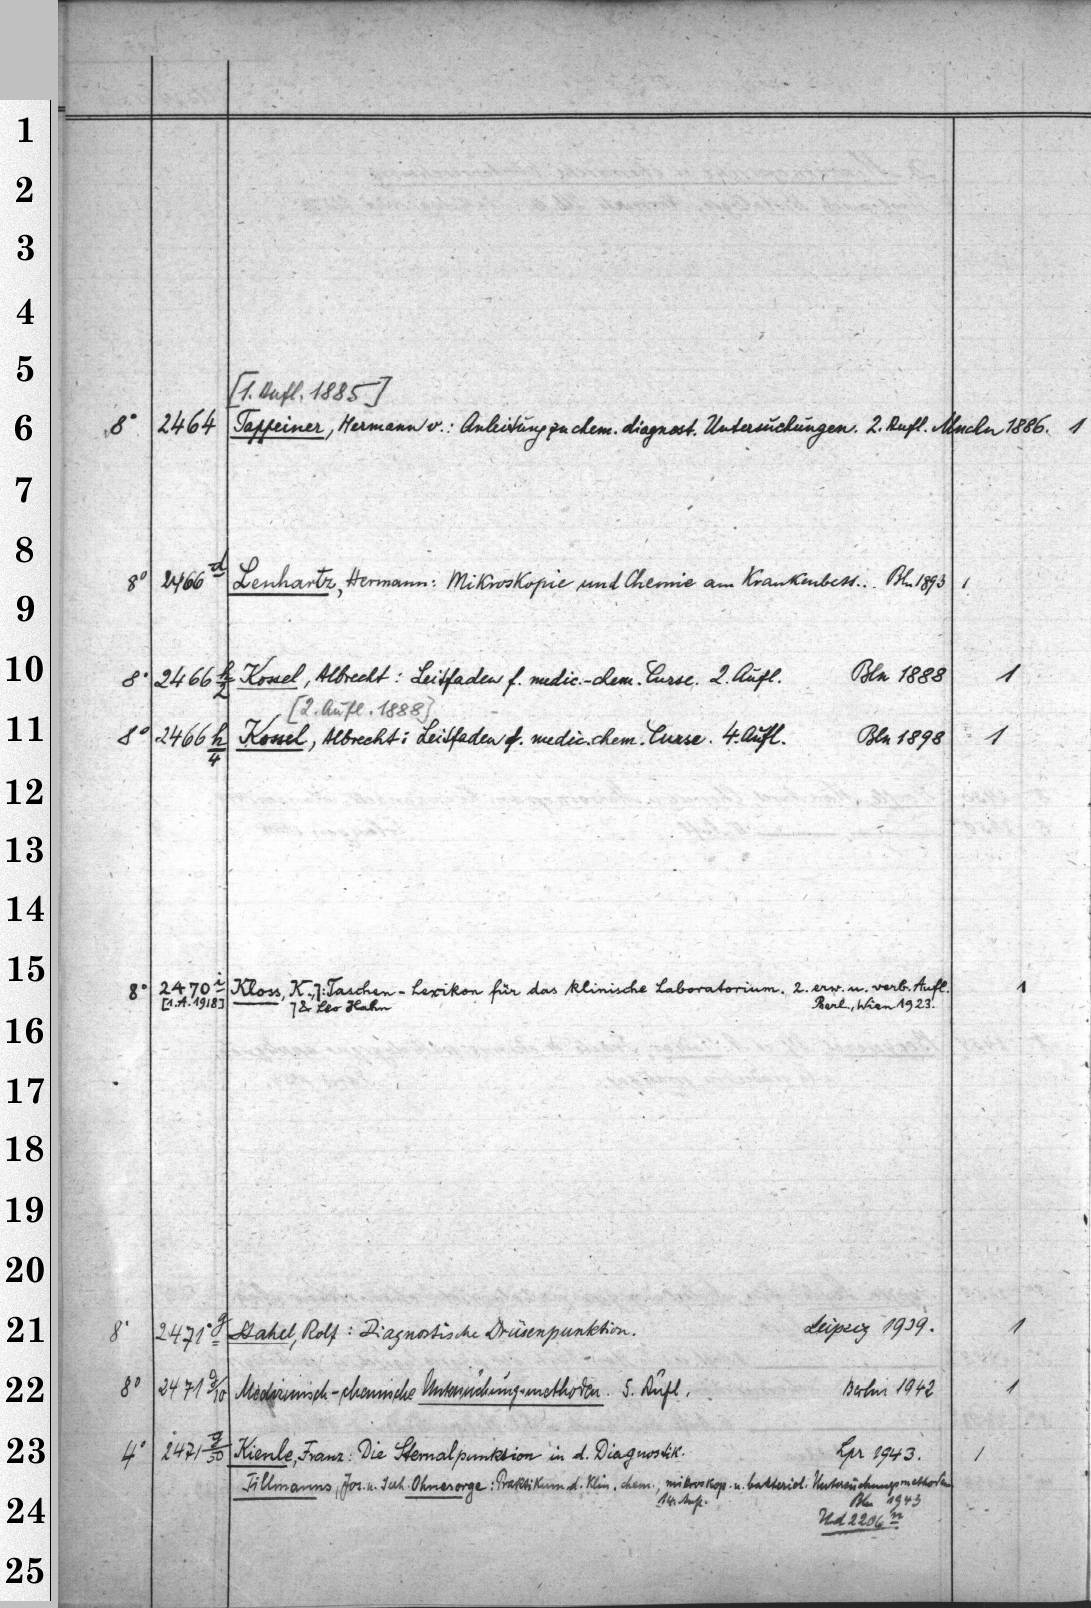 1
2
3
4
5
[1. Aufl. 1885]
6 8° 2464 Tappeiner, Hermann v.: Anleitung zu chem. diagnost. Untersuchungen. 2. Aufl. Mnchn 1886. 1
7
8
8° 2466 d Lenhartz, Hermann: Mikroskopie und Chemie am Krankenbett... Bln 1893 1
9
10 8° 2466 h/2 Kossel, Albrecht: Leitfaden f. medic.-chem. Curse. 2. Aufl. Bln 1888 1
[2. Aufl. 1888]
11 8° 2466 h/4 Kossel, Albrecht: Leitfaden f. medic. chem. Curse. 4. Aufl. Bln 1898 1
12
13
14
15 8° 2470 i Kloss, K., J: Taschen-Lexikon für das klinische Laboratorium. 2. erw. u. verb. Aufl. 1
[1.A. 1918] & Leo Hahn Berl., Wien 1923.
16
17
18
19
20
21 8° 2471 g Stahel, Rolf: Diagnostische Drüsenpunktion. Leipzig 1939. 1
22 8° 2471 g/10 Medizinisch-chemische Untersuchungsmethoden. 5. Aufl. Berlin 1942 1
23 4° 2471 g/30 Kienle, Franz: Die Sternalpunktion in d. Diagnostik. Lpz 1943. 1
Tillmanns, Jos. u. Ohnesorge: Praktikum d. klin., chem., mikroskop. u. bakteriol. Untersuchungsmethoden
24 14. Aufl. Bln 1943
2206 n
25